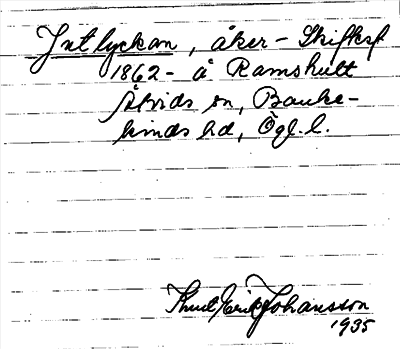 Jutlyckan, åker - Skifksf
1862 - å Ramshult
Åtvids sn, Banke-
kinds hd, Ögl. l.
Knut Erik Johansson
1935